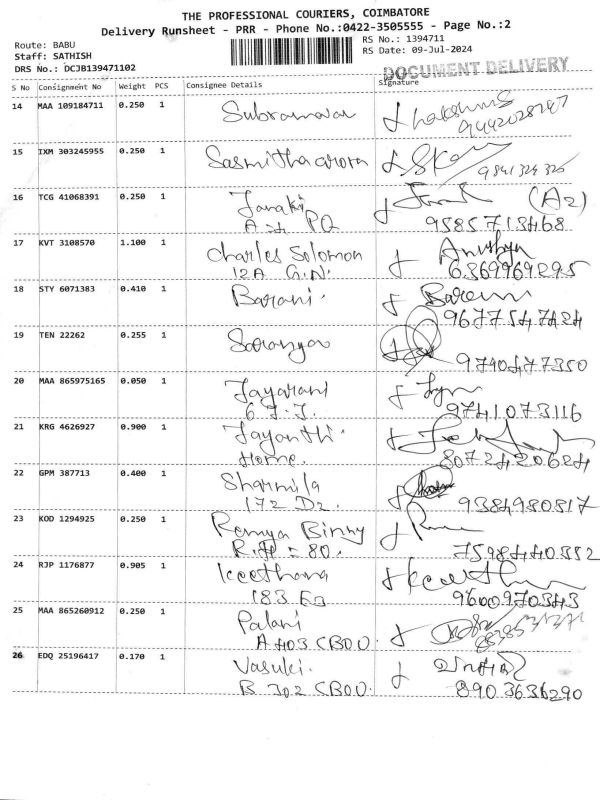 THE PROFESSIONAL COURIERS, COIMBATORE
Delivery Runsheet - PRR - Phone No.:0422-3505555 - Page No.:2
Route: BABU
Staff: SATHISH
DRS No.: DCJB139471102
RS No.: 1394711
RS Date: 09-Jul-2024
DOCUMENT DELIVERY
S No Consignment No Weight PCS Consignee Details Signature
14 MAA 109184711 0.250 1 Subramavan
15 IXM 303245955 0.250 1 Sasmitha arora
9841324326
16 TCG 41068391 0.250 1 Janaki (A2)
9585713468
17 KVT 3108570 1.100 1 Charles Solomon
12A G.N. 6369969295
18 STY 6071383 0.410 1 Barani.
9677547424
19 TEN 22262 0.255 1 Saranya
9790477350
20 MAA 865975165 0.050 1 Jayarani
6 J.J. 9741073116
21 KRG 4626927 0.900 1 Jayanthi.
Home. 8072420624
22 GPM 387713 0.400 1 Sharmila
172 D2 9384980817
23 KOD 1294925 0.250 1 Remya Binny
= 80. 7598440352
24 RJP 1176877 0.905 1 Keethana
183 9600970343
25 MAA 865260912 0.250 1 Palani
A 403 CBOU
26 EDQ 25196417 0.170 1 Vasuki.
B 302 CBOU. 8903636290